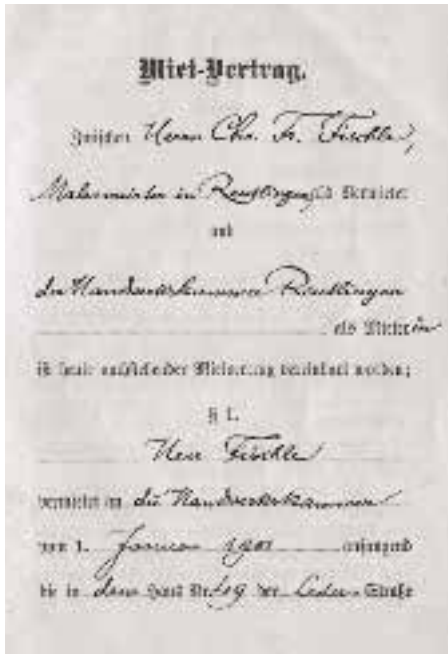 Miet-Vertrag.
Zwischen Herrn Chr. Fr. Fischle,
Malermeister in Reutlingen als Vermieter
und
der Handwerkskammer Reutlingen
als Mieterin
ist heute nachstehender Mietvertrag vereinbart worden;
§ 1.
Herr Fischle
vermietet an die Handwerkskammer
vom 1. Januar 1901 anfangend
die in dem Haus Nr. der Leder-Straße